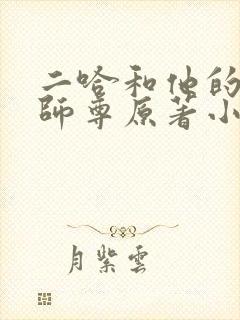 二哈和他的
師尊原著小
月紫雲